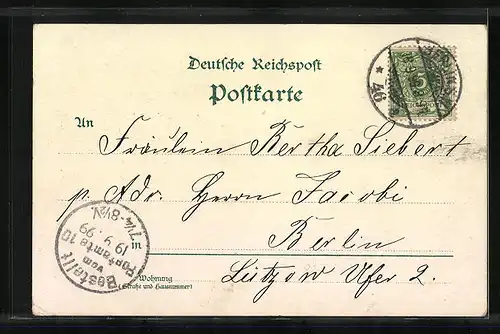 Deutsche Reichspost
Postkarte
An Fräulein Bertha Siebert
p. Adr. Herrn Jacobi
in Berlin
Wohnung Lützow Ufer 2.
(Straße und Hausnummer)
* 46
Bestellt
vom
Postamte 10
19 9. 99
7¼-8½N.